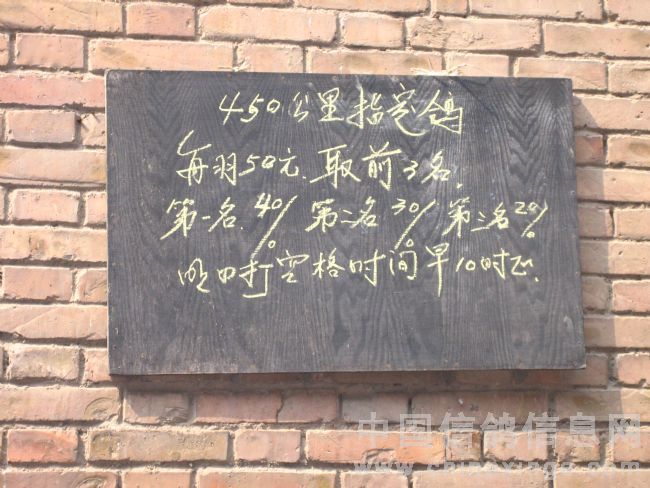 450公里指定鸽
每羽50元.取前3名.
第一名.40% 第二名30% 第三名20%
明日打空格时间早10时正.
中国信鸽信息网
www.chinaxinge.com